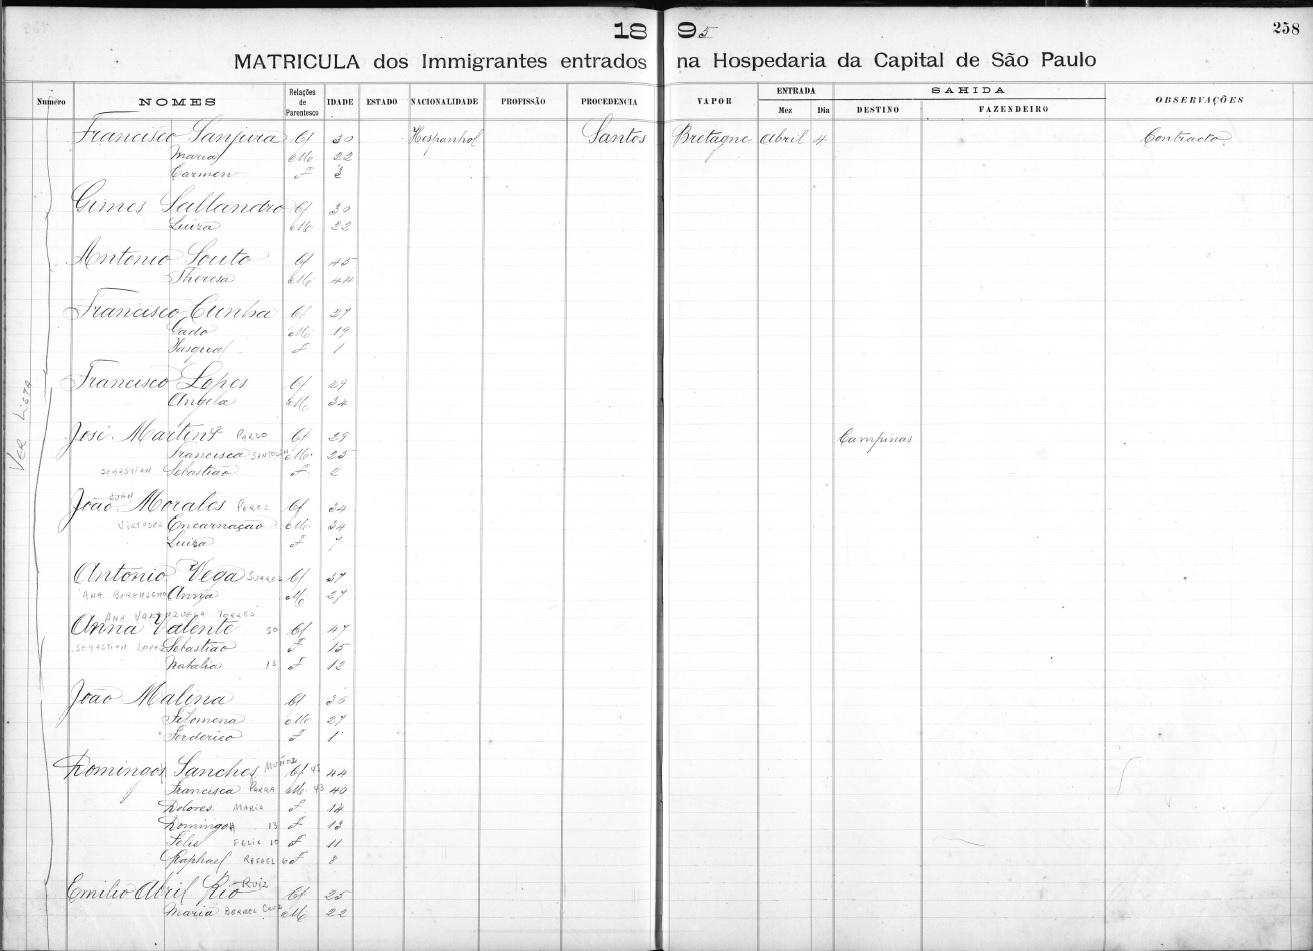 18 95 258
MATRICULA dos Immigrantes entrados na Hospedaria da Capital de São Paulo
Numero NOMES Relações de Parentesco IDADE ESTADO NACIONALIDADE PROFISSÃO PROCEDENCIA VAPOR ENTRADA Mez Dia SAHIDA DESTINO FAZENDEIRO OBSERVAÇÕES
Francisco Sanjura Cf 30 Hespanhol Santos Bretagne Abril 4 Contracto
Maria Mr 22
Carmen F 3
Gimes Sallandro Cf 30
Luiza Mr 22
Antonio Souto Cf 45
Theresa Mr 44
Francisco Cunha Cf 27
Mr 19
Pasqual F 1
VER LISTA
Francisco Lopes Cf 29
Angela Mr 34
José Martins PARDO Cf 29 Campinas
Francisca Mr 25
SEBASTIAN Sebastião F 2
JUAN
João Morales PEREZ Cf 34
VIRTUDES Encarnação Mr 34
Luisa F 7
Antonio Vega SUAREZ Cf 37
ANA Anna Mr 27
ANA TORRES
Anna Valente 50 Cf 47
SEBASTIAN LOPEZ Sebastião F 15
Natalia 13 F 12
João Malina Cf 35
Filomena Mr 27
Ferderico F 1
Domingos Sanches MUÑOZ Cf 45 44
Francisca PARRA Mr 43 40
Dolores MARIA F 14
Domingos 13 F 13
Felis FELIX 10 F 11
Raphael RAFAEL 6 F 8
RUIZ
Emilio Abril Rio Cf 25
Maria CRUZ Mr 22